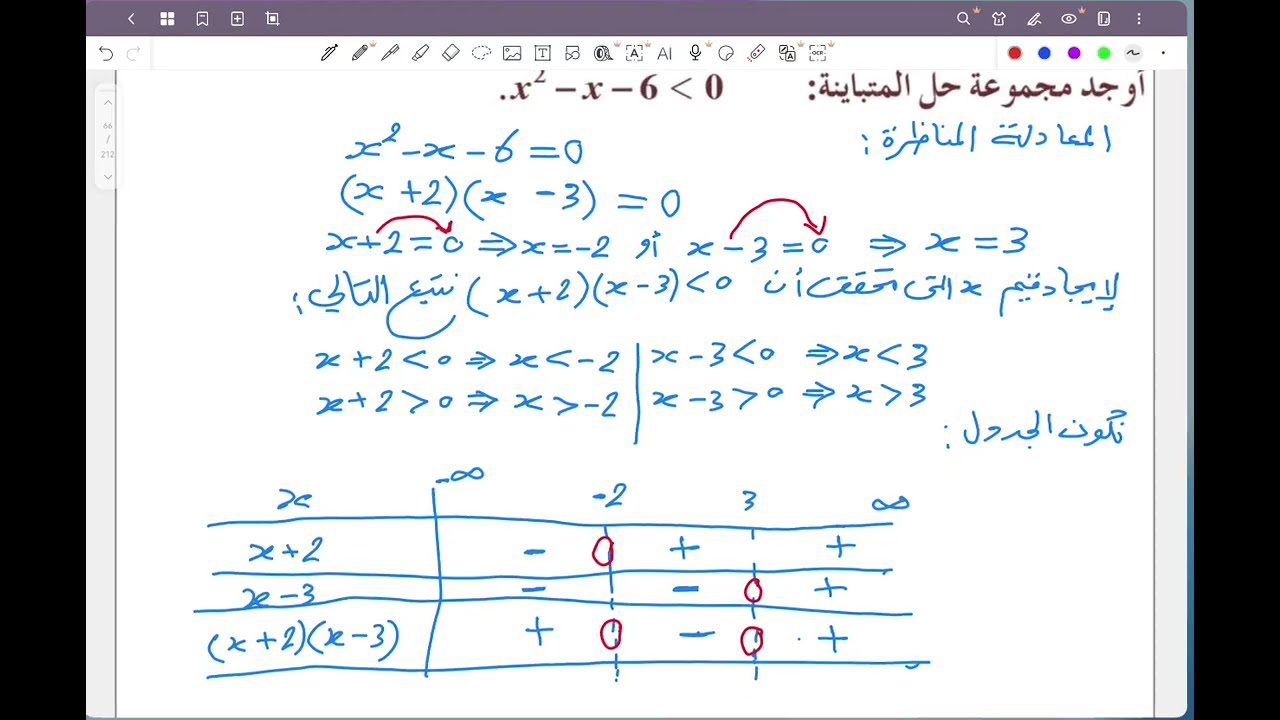 66
/
212
AI
OCR
أوجد مجموعة حل المتباينة: x² − x − 6 < 0.
المعادلة المناظرة:
x² − x − 6 = 0
(x + 2)(x − 3) = 0
x + 2 = 0 ⇒ x = −2 أو x − 3 = 0 ⇒ x = 3
لإيجاد قيم x التي تحقق أن (x + 2)(x − 3) < 0 نتبع التالي:
x + 2 < 0 ⇒ x < −2 | x − 3 < 0 ⇒ x < 3
x + 2 > 0 ⇒ x > −2 | x − 3 > 0 ⇒ x > 3
نكون الجدول:
x −∞ −2 3 ∞
x + 2 − 0 + +
x − 3 − − 0 +
(x + 2)(x − 3) + 0 − 0 +